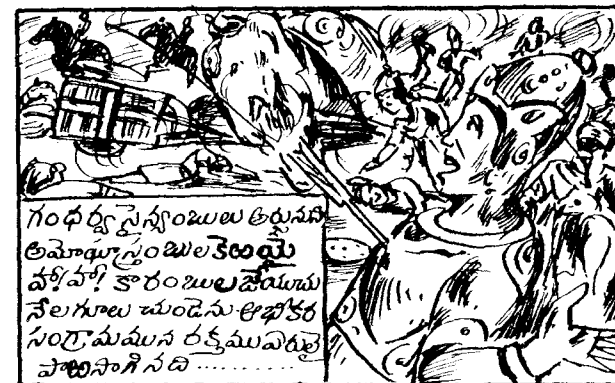 గంధర్వ సైన్యంబులు అర్జునుని
అమోఘాస్త్రంబుల కెరయై
హా! హా! కారంబుల జేయుచు
నేలగూలు చుండెను ఆభీకర
సంగ్రామమున రక్తము ఏరులై
పారసాగినది ..........